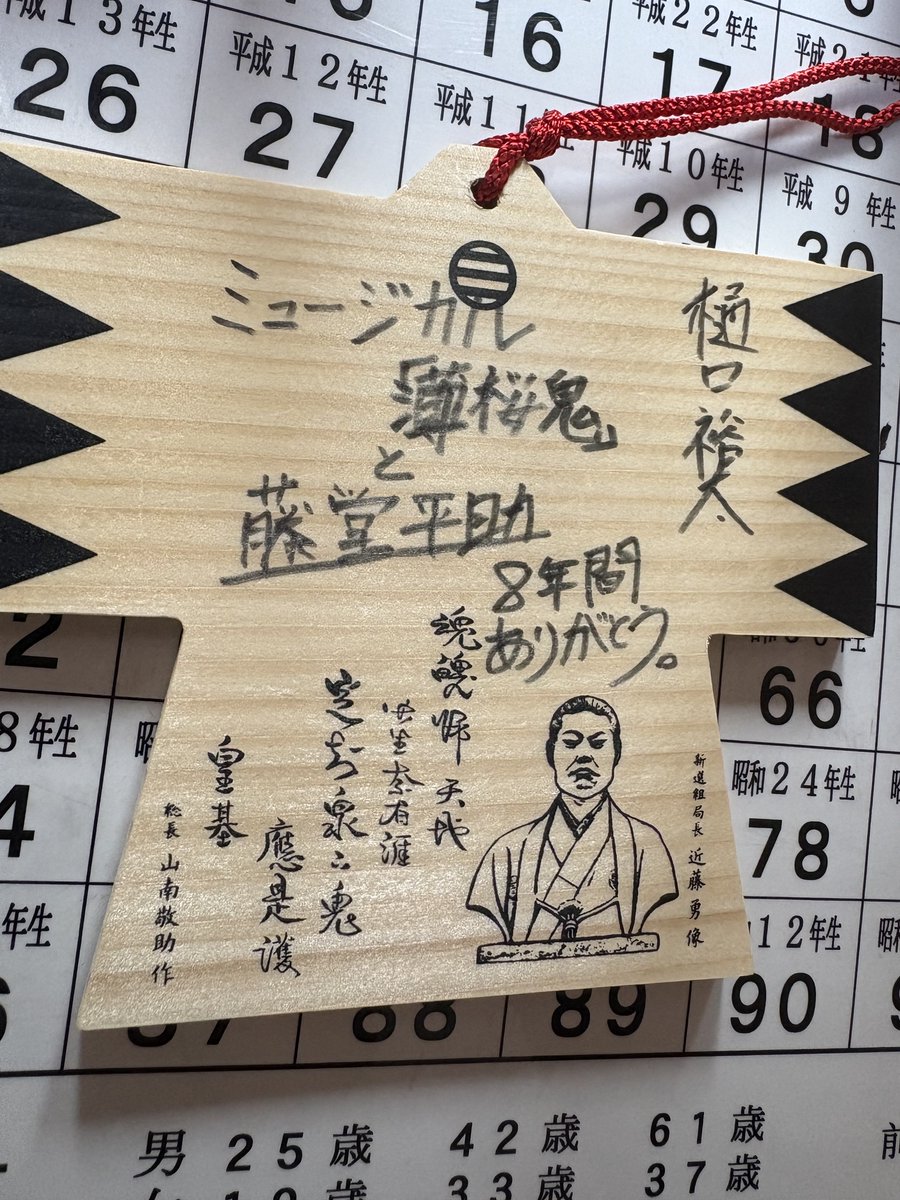 13年生
26
平成12年生
27
16
平成11
平成22年生
17
平成10年生
29
18
平成 9 年生
30
樋口裕太
ミュージカル
「薄桜鬼」
と
藤堂平助
8年間
ありがとう。
新選組局長 近藤勇像
魂魄帰天地
此生奈有涯
定知泉下鬼
應是護
皇基
総長 山南敬助作
2
66
8年生
4
昭和24年生
78
年生
12年生
87
88
89
90
男 25歳 42歳 61歳
33歳 37歳
前